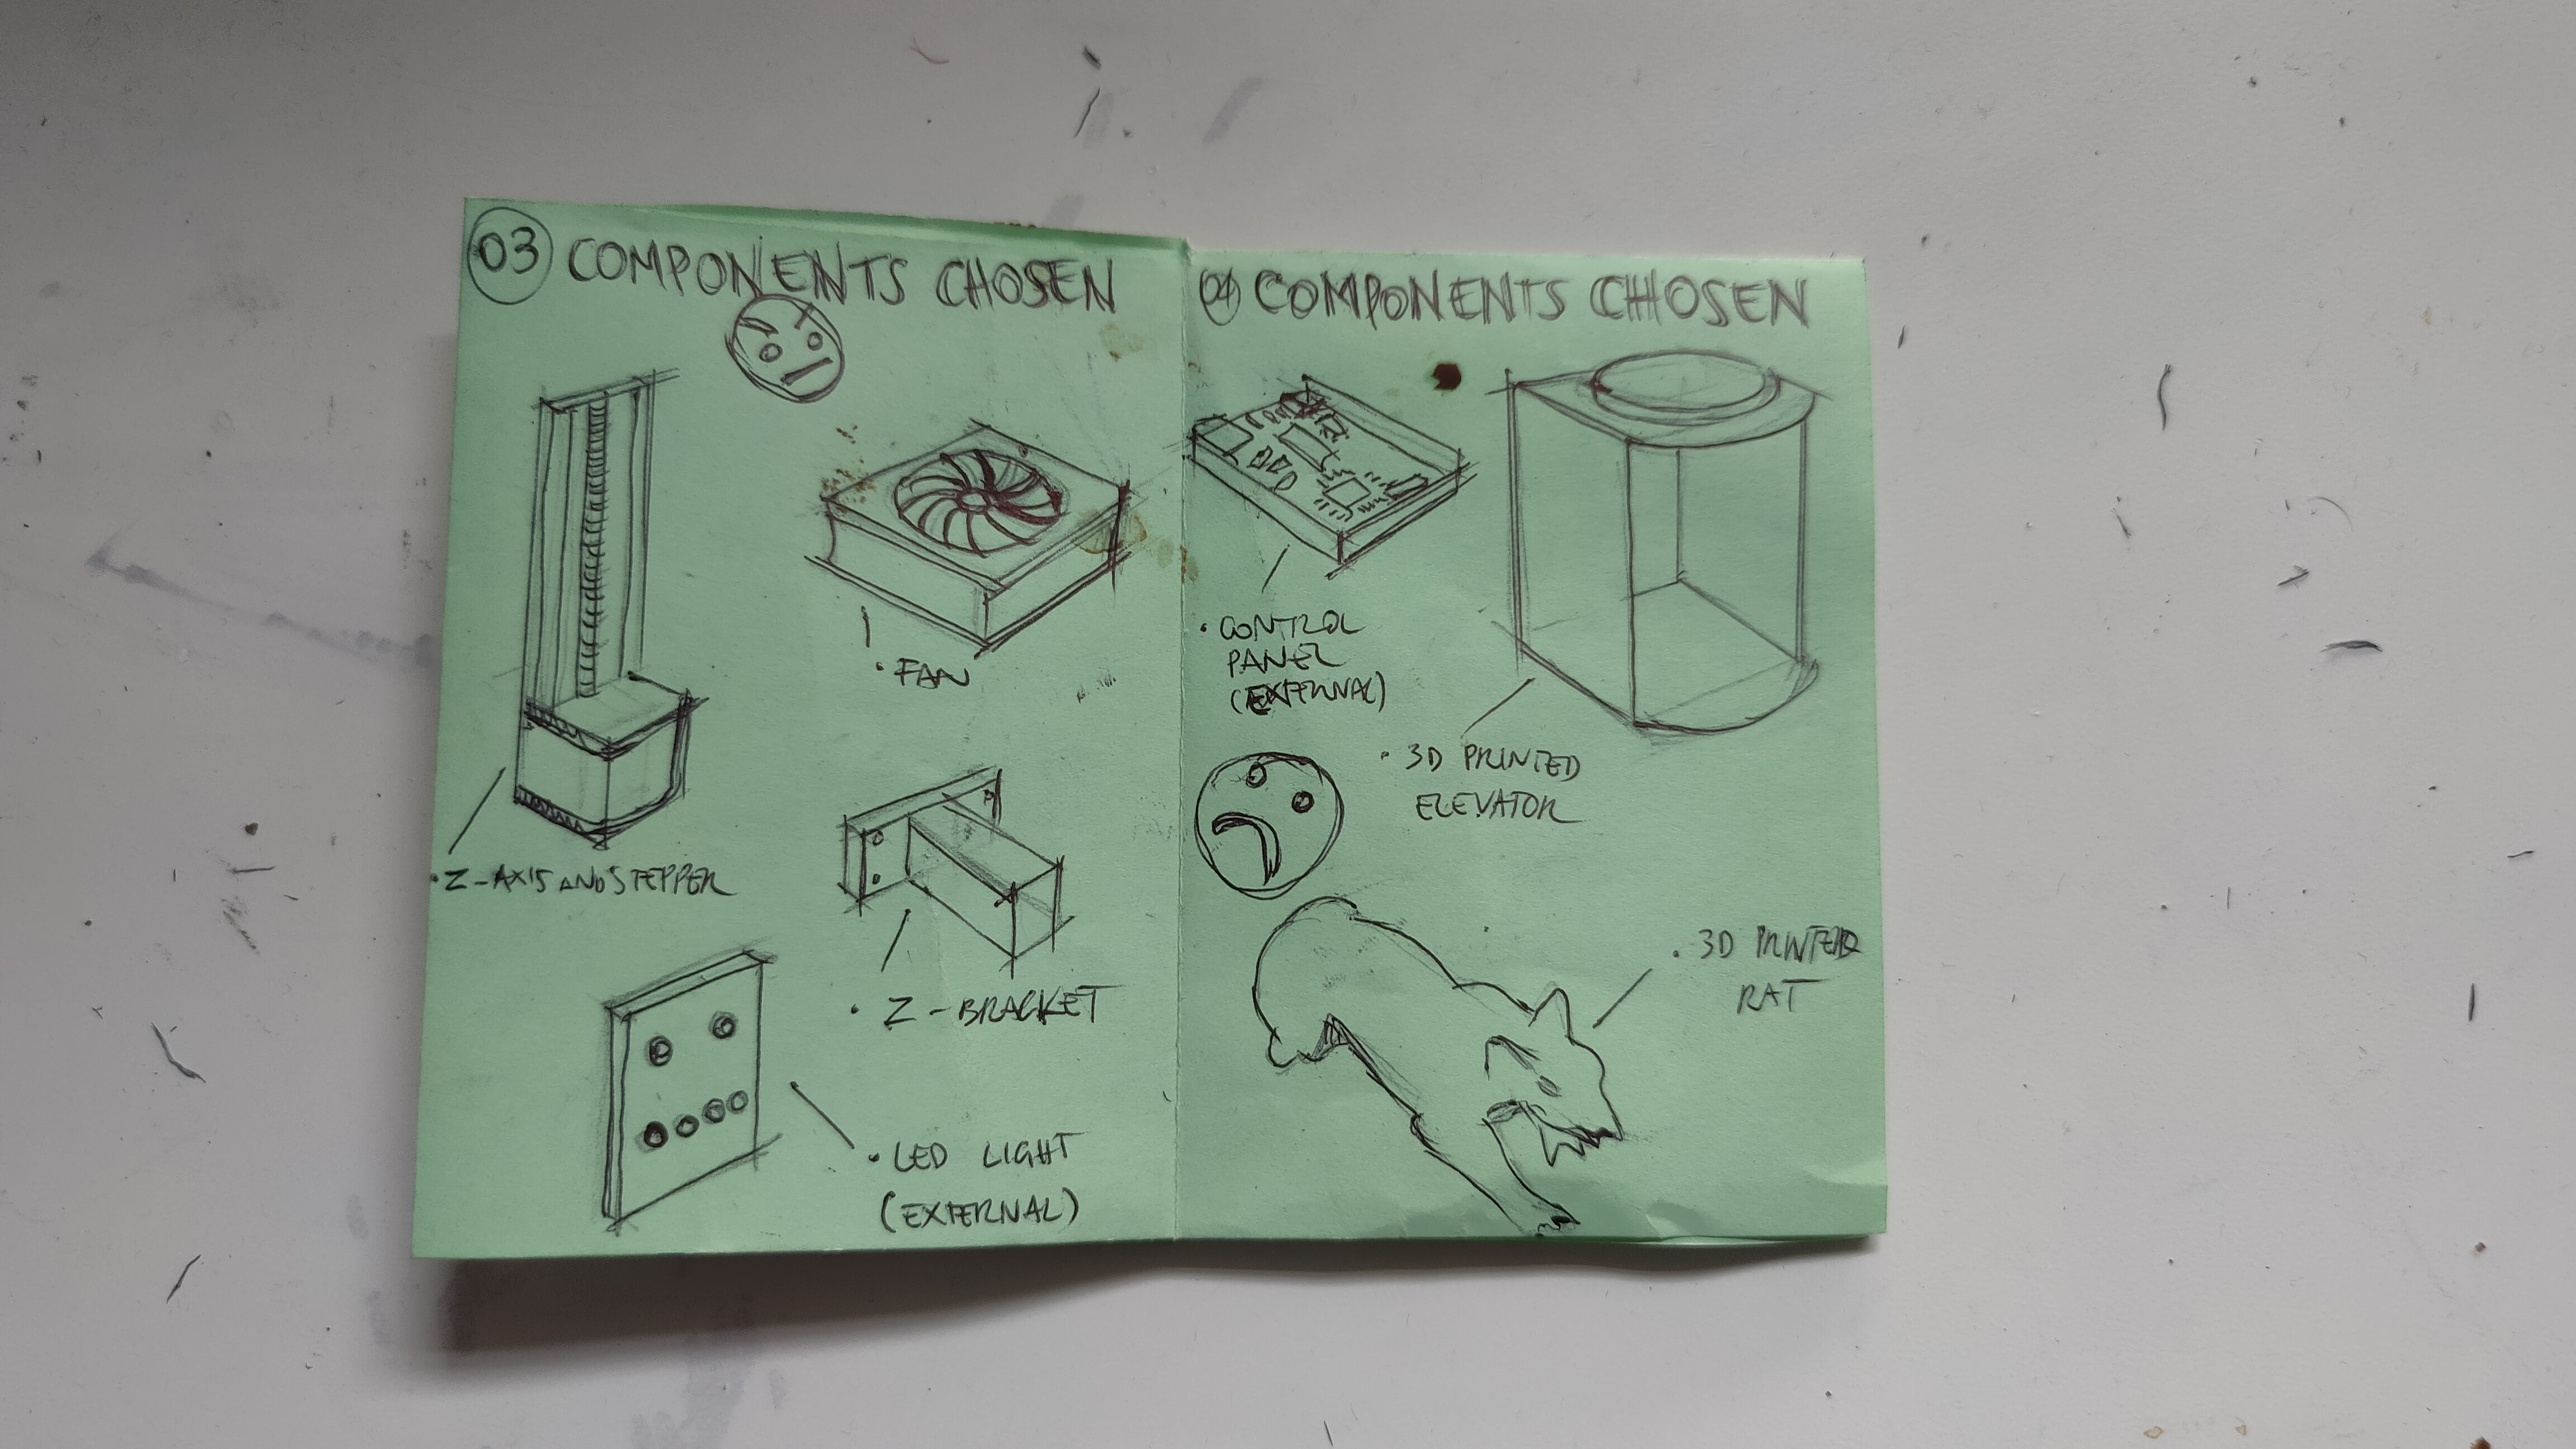 03 COMPONENTS CHOSEN
• FAN
• Z-AXIS AND STEPPER
• Z-BRACKET
• LED LIGHT
(EXTERNAL)
04 COMPONENTS CHOSEN
• CONTROL
PANEL
(EXTERNAL)
• 3D PRINTED
ELEVATOR
• 3D PRINTED
RAT